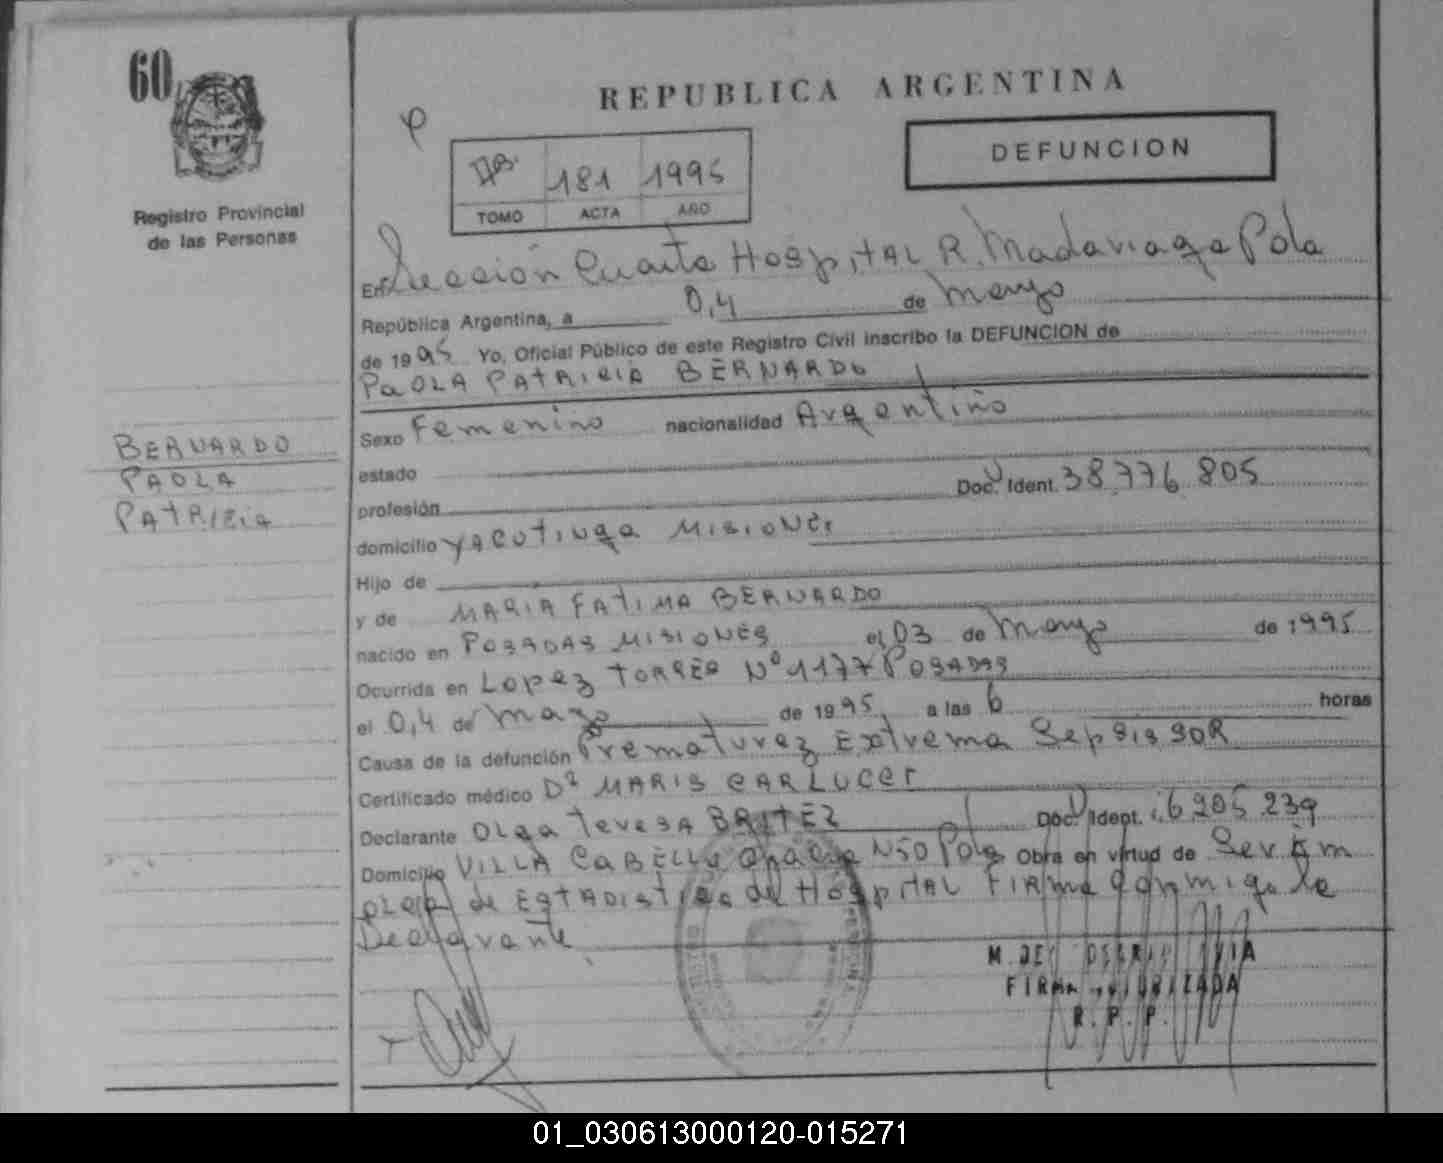 60
Registro Provincial
de las Personas
REPUBLICA ARGENTINA
DEFUNCION
181 1995
TOMO ACTA AÑO
En Sección Cuarta HospitAL R. Madariaga
República Argentina, a 0,4 de mayo
de 1995 Yo, Oficial Público de este Registro Civil inscribo la DEFUNCION de
PaOLA PATRICIA BERNARDO
BERNARDO
PAOLA
PATRICIA
Sexo Femenino nacionalidad Argentino
estado
profesión Doc. Ident. 38.776.805
domicilio YACUTINGA MISIONES
Hijo de
y de MARIA FATIMA BERNARDO
nacido en POSADAS MISIONES el 03 de mayo de 1995
Ocurrida en LOPEZ TORRES Nº 1177 POSADAS
el 0,4 de mayo de 1995 a las 6 horas
Causa de la defunción Prematurez Extrema Sepsis
Certificado médico MARIS CARLUCCI
Declarante OLga Teresa BRITEZ Doc. Ident. 6.205.239
Domicilio VILLA CABELLO Obra en virtud de
de ESTADISTICA de HOSPITAL FIRMA conmigo la
Declarante
FIRMA AUTORIZADA
R. P. P.
01_030613000120-015271